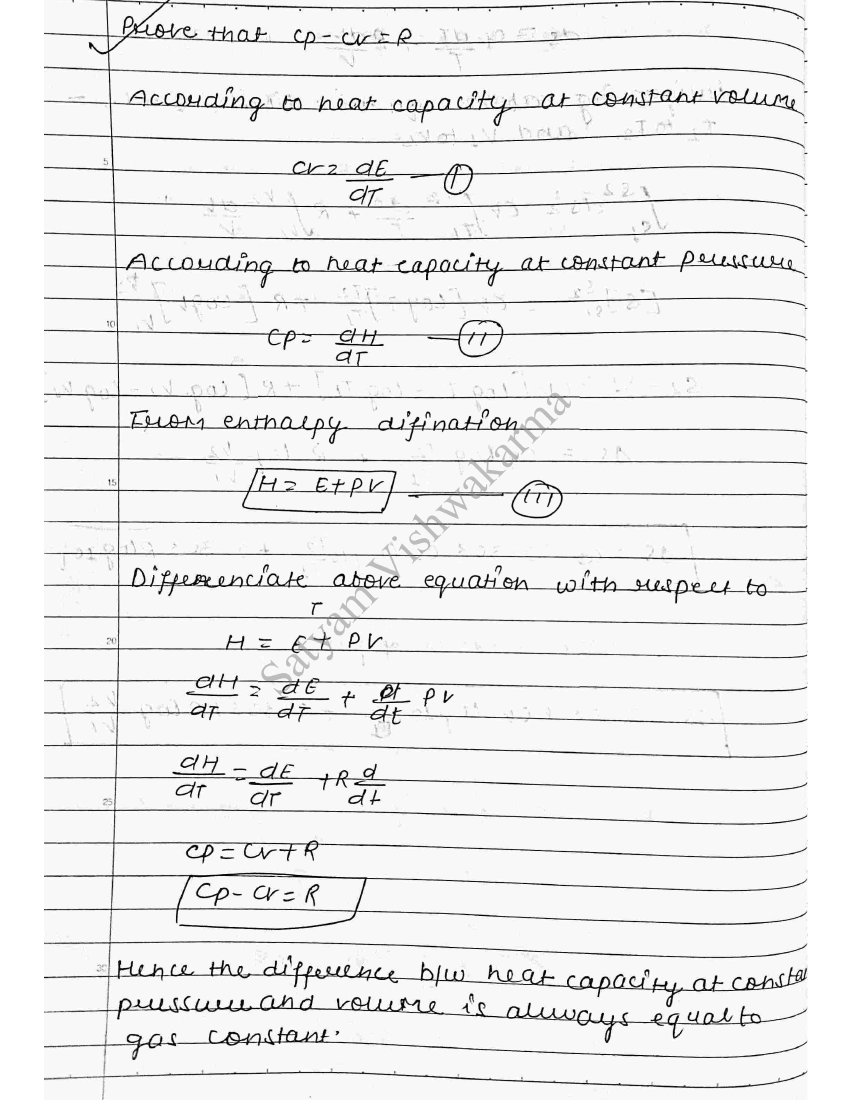 Prove that Cp - Cv = R
According to heat capacity at constant volume
Cv = dE/dT — (I)
According to heat capacity at constant pressure
Cp = dH/dT — (II)
From enthalpy difination
H = E + PV — (III)
Differenciate above equation with respect to
T
H = E + PV
dH/dT = dE/dT + d/dt PV
dH/dT = dE/dT + R d/dt
Cp = Cv + R
Cp - Cv = R
Hence the difference b/w heat capacity at consta
pressure and volume is always equal to
gas constant.
Satyam Vishwakarma
5
10
15
20
25
30